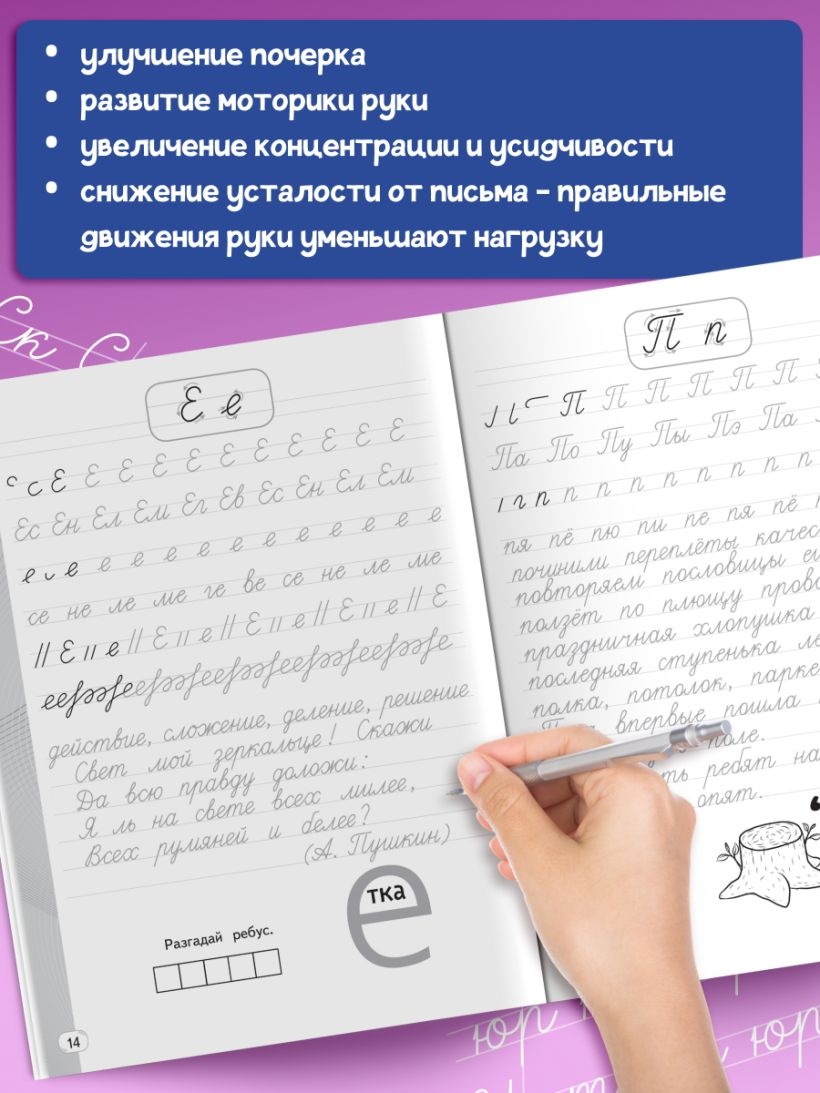 • улучшение почерка
• развитие моторики руки
• увеличение концентрации и усидчивости
• снижение усталости от письма - правильные
движения руки уменьшают нагрузку
Е е
с с Е Е Е Е Е Е Е Е Е Е Е
Ес Ен Ел Ем Ег Ев Ес Ен Ел Ем
е е е е е е е е е е е е
се не ле ме ге ве се не ле ме
// Е // е // Е // е // Е // е // Е // е // Е
действие, сложение, деление, решение
Свет мой зеркальце! Скажи
Да всю правду доложи:
Я ль на свете всех милее,
Всех румяней и белее?
(А. Пушкин)
Разгадай ребус.
е
тка
14
П п
П П П П П П
Па По Пу Пы Пэ Па
п п п п п п п п
пя пё пю пи пе пя пё
починили переплёты качес
повторяем пословицы
ползёт по плющу прово
праздничная хлопушка
последняя ступенька ле
полка, потолок, парке
впервые пошла
поле.
ть ребят на
опят.
Ск С
юр
юр